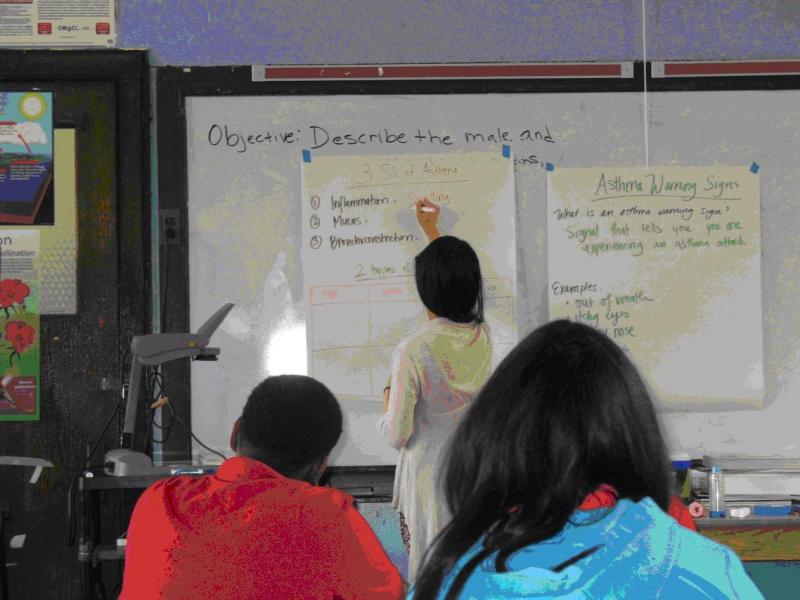 Objective: Describe the male, and
3 Ss of Asthma
① Inflammation. Swelling
② Mucus.
③ Bronchoconstriction.
2 types of
Asthma Warning Signs
What is an asthma warning sign?
Signal that tells you you are
experiencing an asthma attack
Examples:
• out of breath
• Itchy eyes
nose